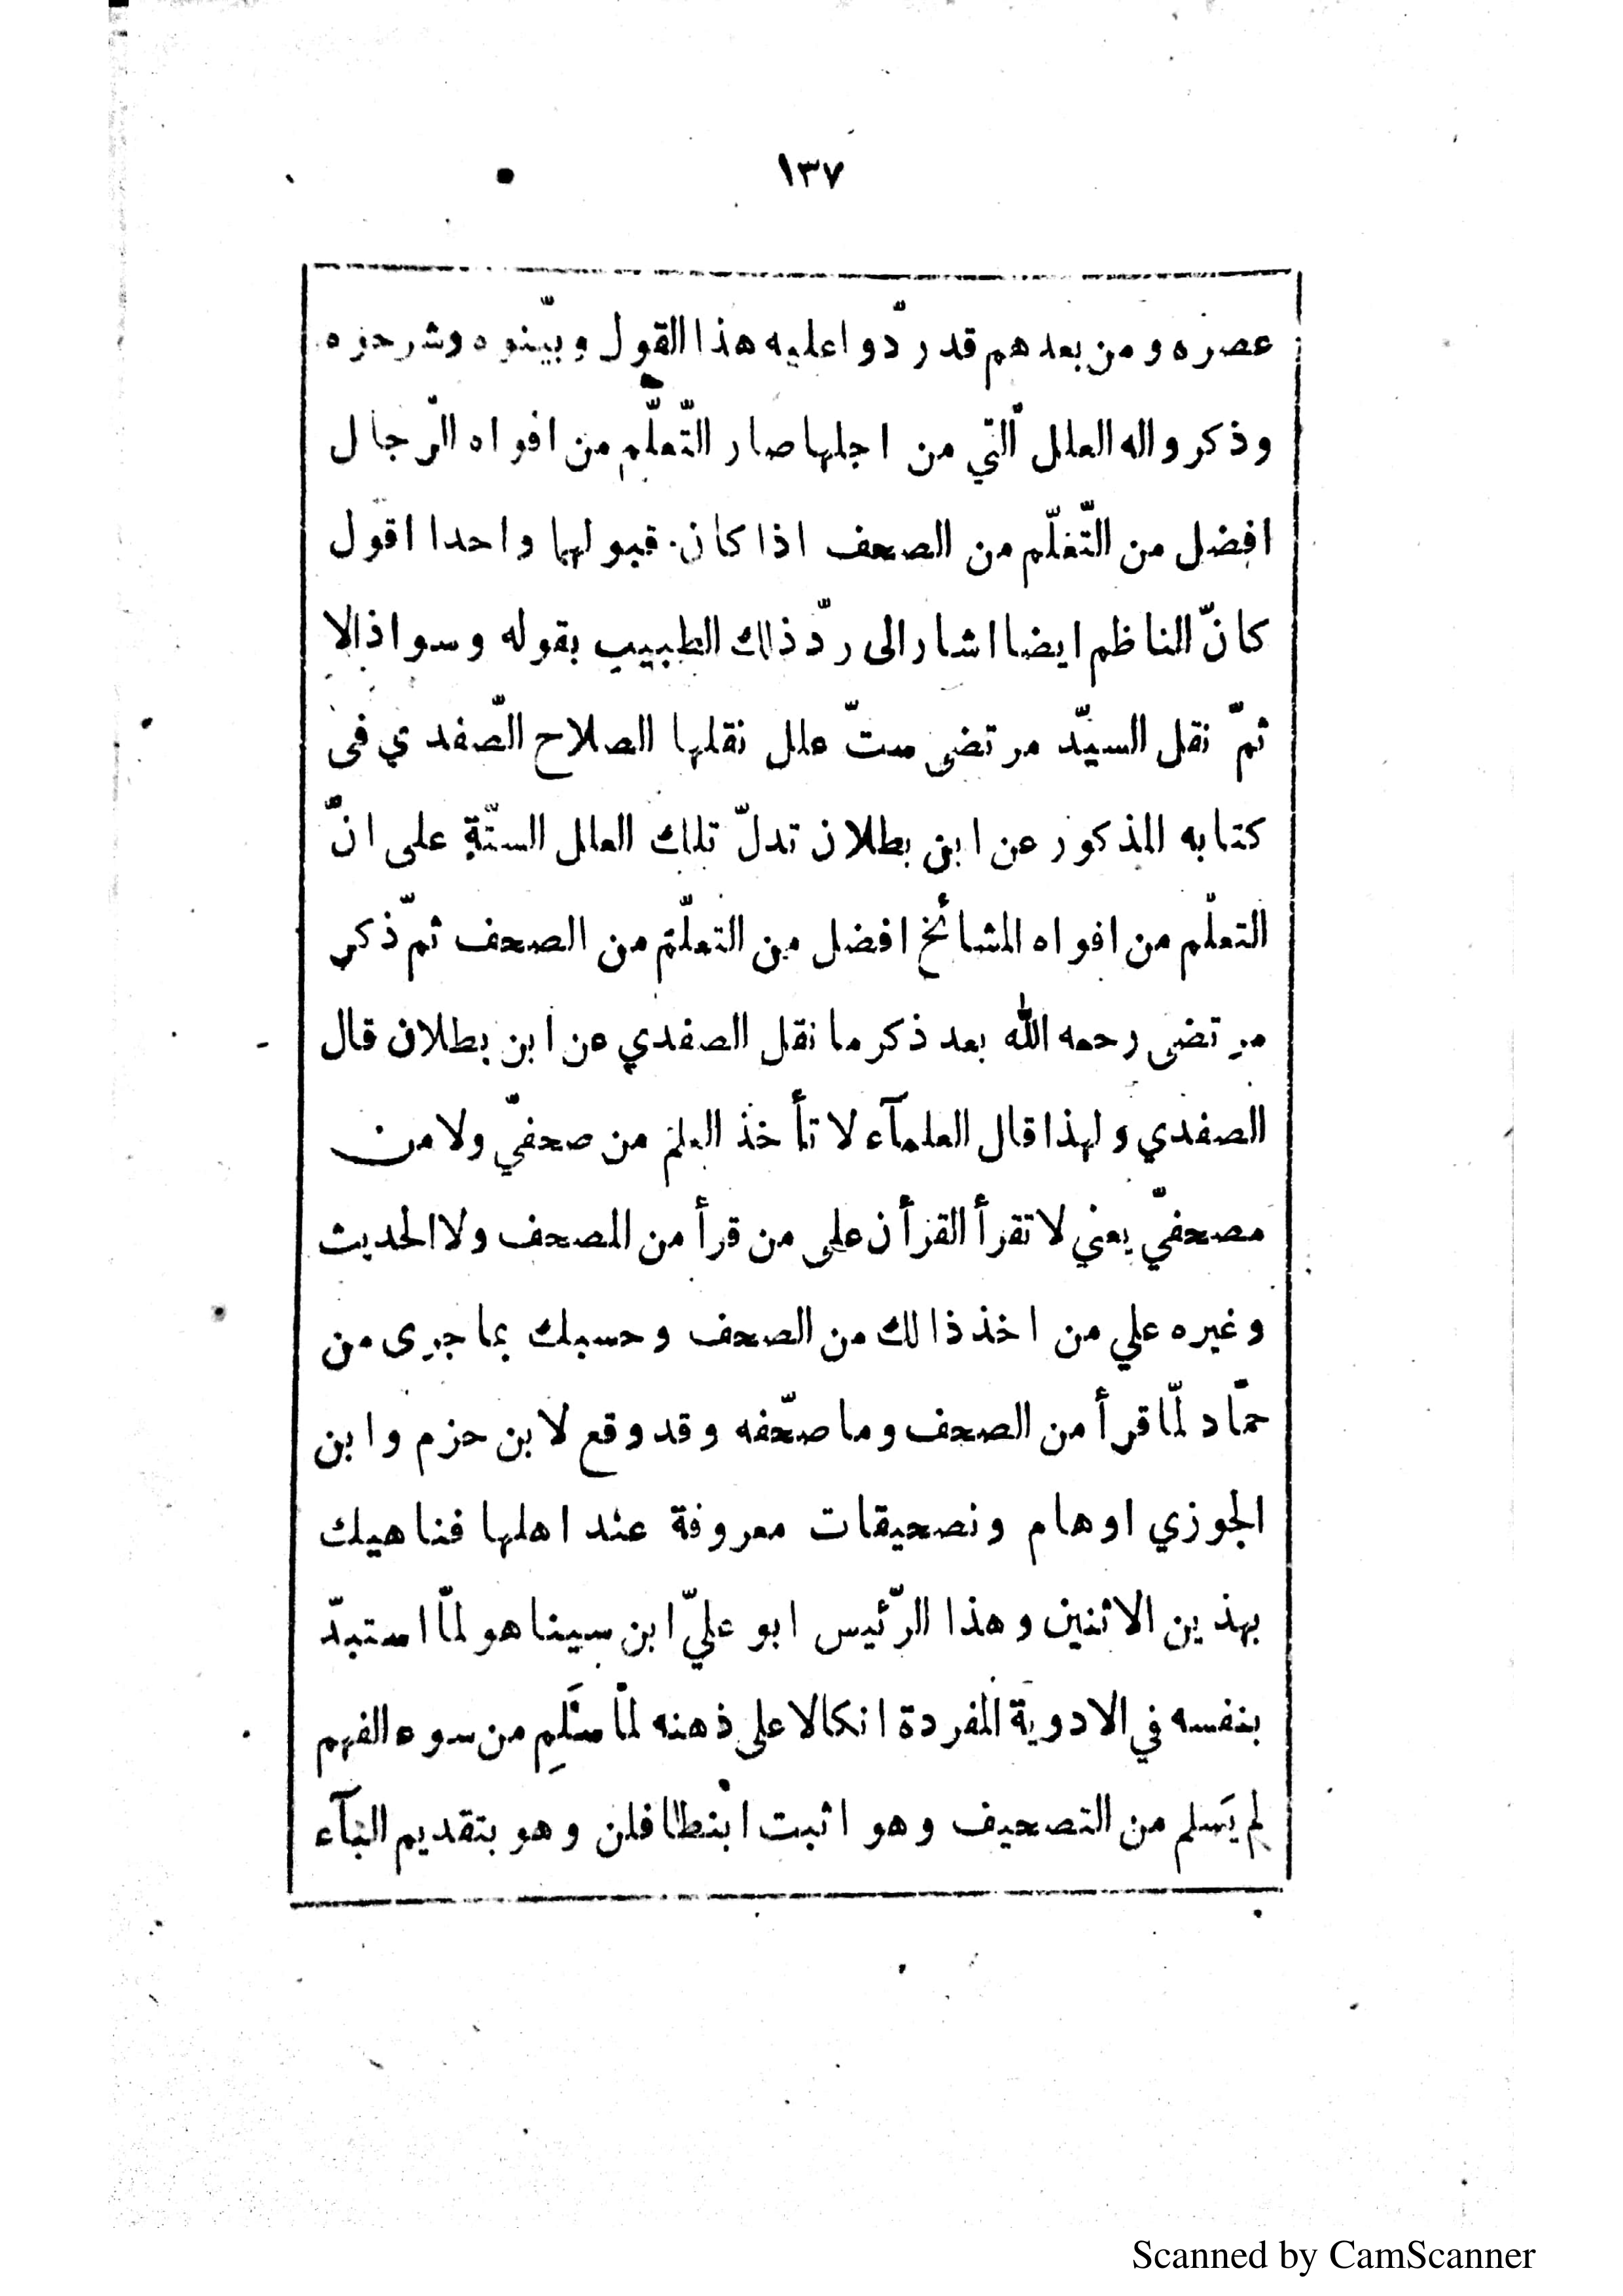 ١٣٧
عصره ومن بعدهم قد ردّوا عليه هذا القول وبيّنوه وشرحوه
وذكروا له العلل الّتي من اجلها صار التّعلّم من افواه الرّجال
افضل من التّعلّم من الصحف اذا كان قبولهما واحدا اقول
كانّ الناظم ايضا اشار الى ردّ ذلك الطبيب بقوله وسواذالا
ثمّ نقل السيّد مرتضى ستّ علل نقلها الصلاح الصّفدي في
كتابه المذكور عن ابن بطلان تدلّ تلك العلل الستّة على انّ
التعلّم من افواه المشائخ افضل من التعلّم من الصحف ثمّ ذكر
مرتضى رحمه الله بعد ذكر ما نقل الصفدي عن ابن بطلان قال
الصفدي ولهذا قال العلمآء لا تأخذ العلم من صحفيّ ولا من
مصحفيّ يعني لا تقرأ القرأن على من قرأ من المصحف ولا الحديث
وغيره علي من اخذ ذالك من الصحف وحسبك بما جرى من
حمّاد لمّا قرأ من الصحف وما صحّفه وقد وقع لابن حزم وابن
الجوزي اوهام وتصحيفات معروفة عند اهلها فناهيك
بهذين الاثنين وهذا الرّئيس ابو عليّ ابن سينا هو لمّا استبدّ
بنفسه في الادوية المفردة اتكالا على ذهنه لمّا سَلَمِ من سوء الفهم
لم يَسلم من التصحيف وهو اثبت ابنطافلن وهو بتقديم البآء
Scanned by CamScanner